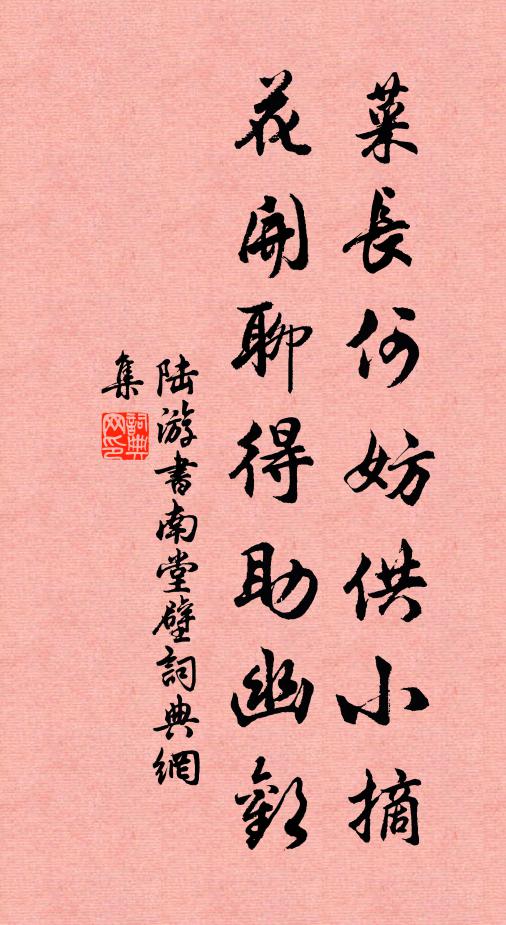 菜長何妨供小摘
花開聊得助幽歡
陸游書南堂壁詞典網
集
詞典網印